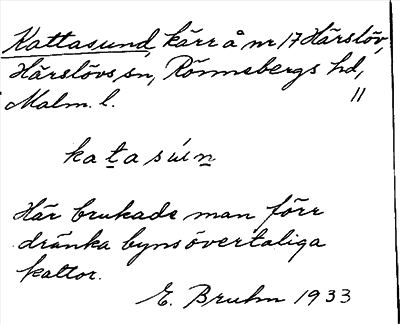 Kattasund, kärr å nr 17 Härslöv,
Härslövs sn, Rönnebergs hd,
Malm. l. "
katasúin
Här brukade man förr
dränka byns övertaliga
kattor.
E. Bruhn 1933